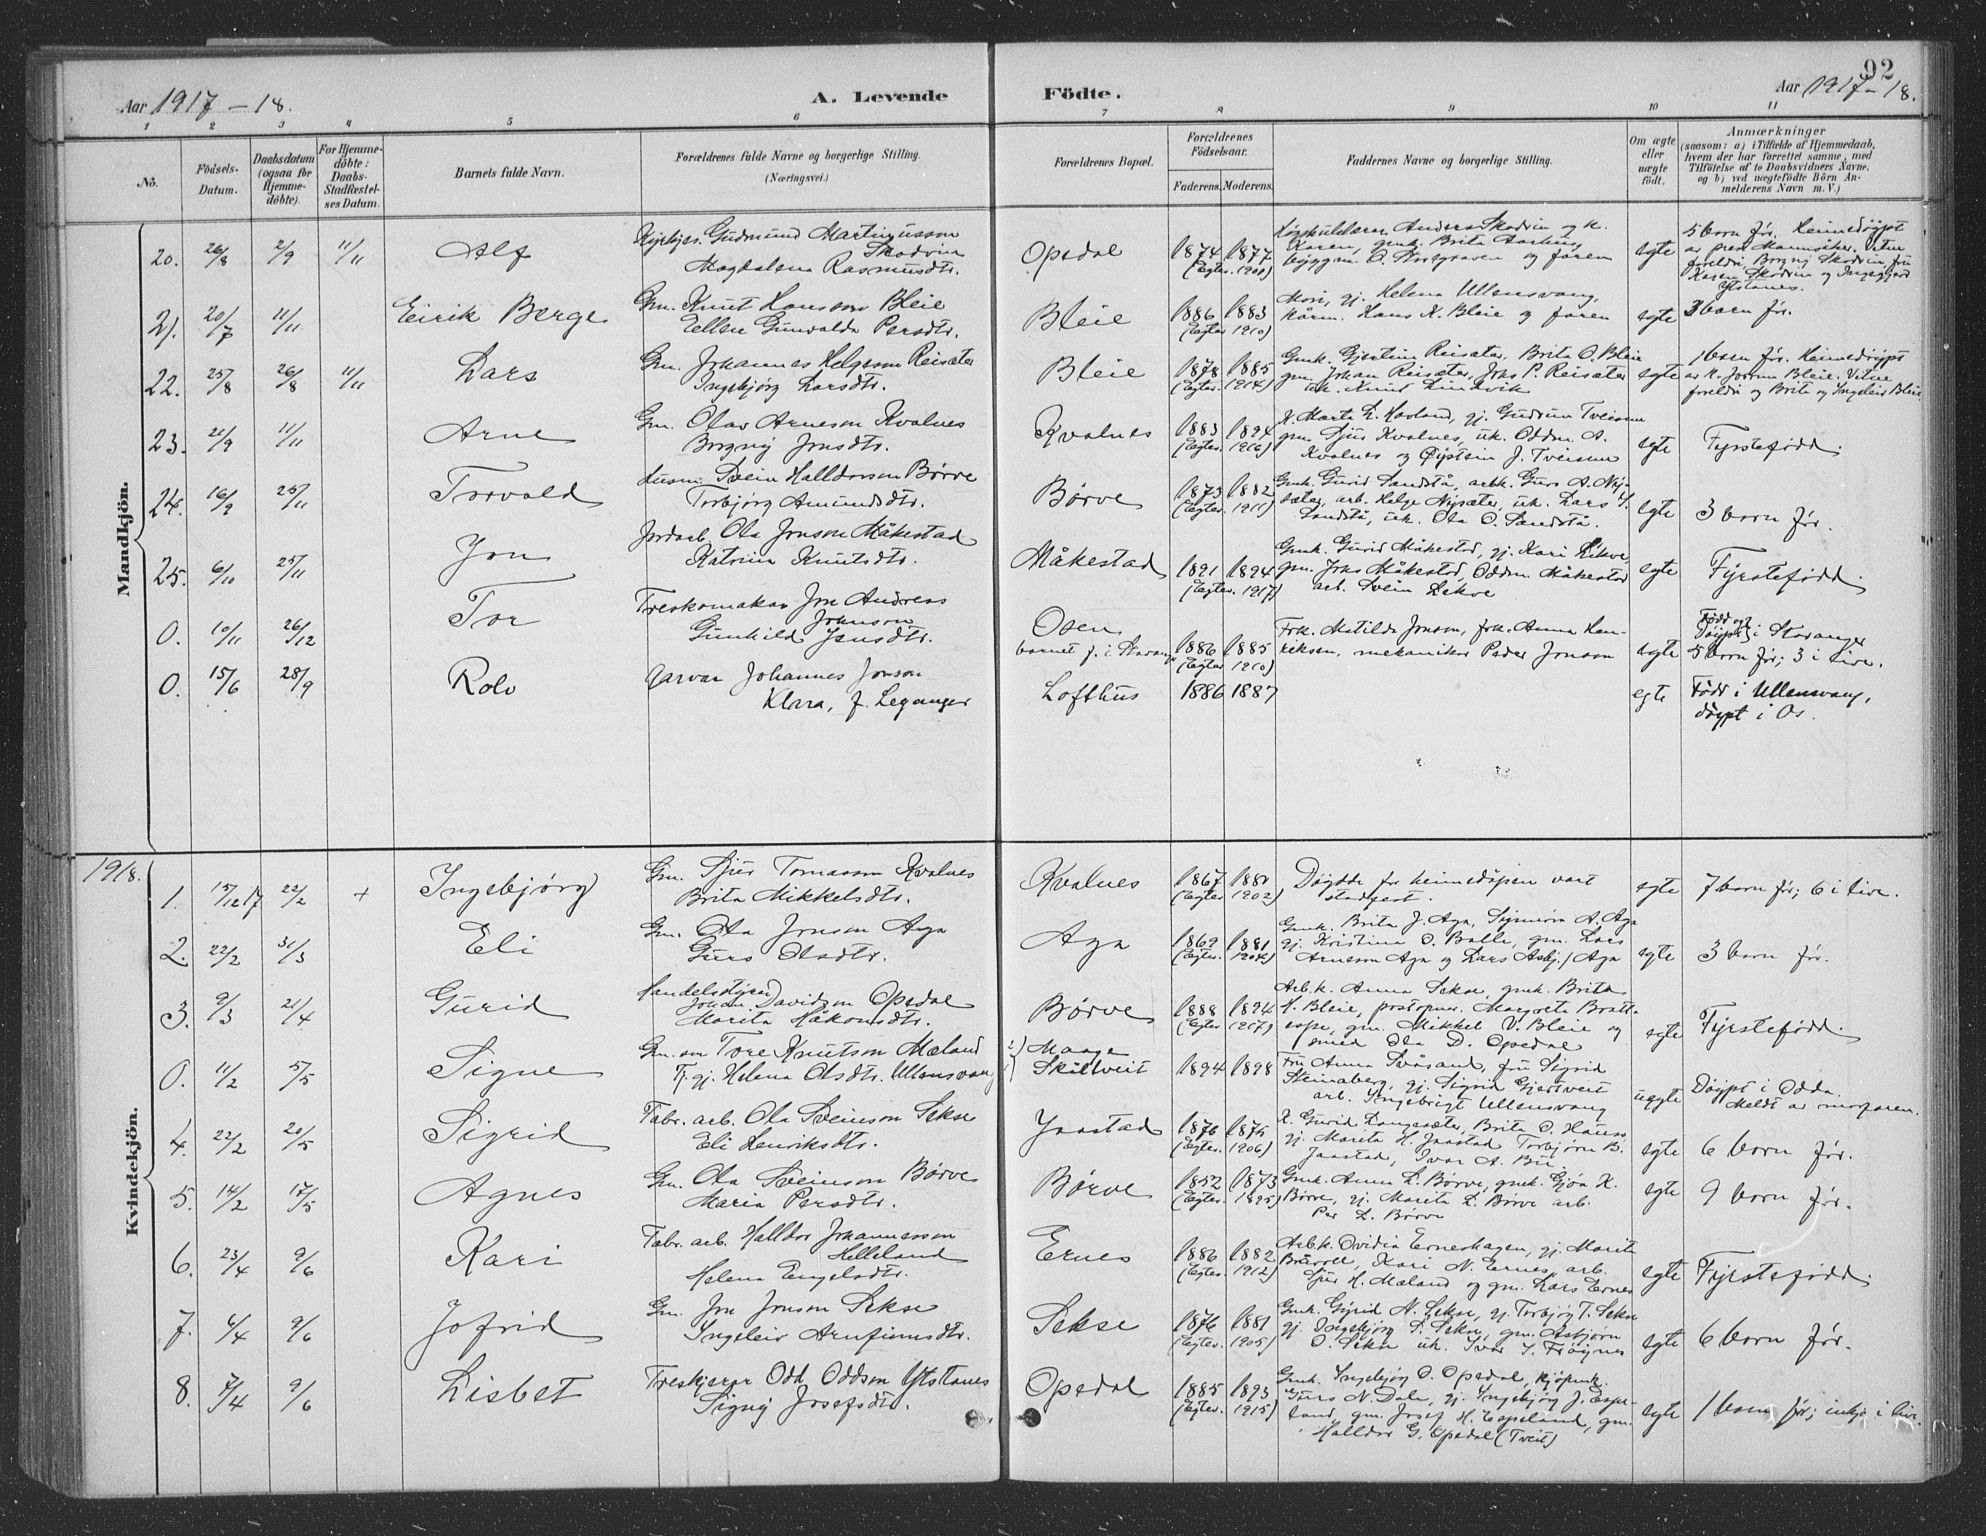 92
Aar 1917–18.
A. Levende Födte.
Aar 1917–18.
1 2 3 4 5 6 7 8 9 10 11
No.
Födsels-Datum.
Daabsdatum (ogsaa för Hjemme-döbte).
For Hjemme-döbte: Daabs-Stadfæstel-ses Datum.
Barnets fulde Navn.
Forældrenes fulde Navne og borgerlige Stilling. (Næringsvei.)
Forældrenes Bopæl.
Forældrenes Födselsaar.
Faderens. Moderens.
Faddernes Navne og borgerlige Stilling.
Om ægte eller uægte födt.
Anmærkninger
(saasom: a) i Tilfælde af Hjemmedaab, hvem der har forrettet samme, med Tilföielse af to Daabsvidners Navne, og b) ved uægtefödte Börn An-melderens Navn m. V.)
Mandkjön.
20. 26/8 2/9 11/11 Alf
Gudmund Martinusson Skodvin
Magdalena Rasmusdtr.
Opedal 1874 1877 (Egtev. 1900)
Anders Skodvin og k. Karen, gmk. Brita Aarhus, byggm. O. Storegraven og faren
egte
5 born før. Heimedøypt av prest Mannsåker. Vitne foreldri, Borgny Skodvin, fru Karen Skodvin og Ingegjerd Ystanes.
21. 20/7 11/11 Eirik Berge
Gm. Knut Hansson Bleie
Ellen Gunvalda Persdtr.
Bleie 1886 1883 (Egtev. 1910)
Mori, gj. Helena Ullensvang, kårm. Hans K. Bleie og faren
egte 3 born før.
22. 25/8 26/8 11/11 Lars
Gm. Johannes Helgeson Reisæter
Ingebjørg Larsdtr.
Bleie 1878 1885 (Egtev. 1914)
Gmk. Gjertina Reisæter, Brita O. Bleie
gm. Johan Reisæter, Johs P. Reisæter
uk. Knud Lindvik
egte
1 born før. Heimedøypt av k. Jorunn Bleie. Vitne foreldri og Brita og Ingeleiv Bleie
23. 21/9 11/11 Arne
Gm. Olav Arneson Kvalnes
Borgny Jonsdtr.
Kvalnes 1883 1894 (Egtev. 1916)
K. Marta L. Hovland, gj. Gudrun Tveisme
gm. Sjur Kvalnes, uk. Oddm. A. Kvalnes og Øystein J. Tveisme
egte Fyrstefødd.
24. 16/9 25/11 Torvald
Husm. Svein Halldorson Børve
Torbjørg Amundsdtr.
Børve 1873 1882 (Egtev. 1911)
Gmk. Gurid Sandstå, arbk. Guro A. Nisæter, arb. Helge Nisæter, uk. Lars S. Sandstå, uk. Ola O. Sandstå.
egte 3 born før.
25. 6/10 25/11 Jon
Jordarb. Ola Jonson Måkestad
Katrina Knutsdtr.
Måkestad 1891 1894 (Egtev. 1917)
Gmk. Gurid Måkestad, gj. Kari Lekve,
gm. Johs Måkestad, Oddm. Måkestad
arb. Svein Lekve
egte Fyrstefødd.
0. 10/11 26/12 Tor
Treskomakar Jon Andreas Johnson
Gunhild Jensdtr.
Osen barnet f. i Stavanger 1886 1885 (Egtev. 1910)
Frk. Matilda Jonson, frk. Anna Henriksen, mekanikar Peder Jonson
egte
Fødd og døypt i Stavanger
5 born før; 3 i live.
0. 15/6 28/9 Rolv
Garvar Johannes Jonson
Klara, f. Leganger
Lofthus 1886 1887
egte Født i Ullensvang, døypt i Os.
1918.
Kvindekjön.
1. 15/12 17 22/2 + Ingebjørg
Gm. Sjur Tomasson Kvalnes
Brita Mikkelsdtr.
Kvalnes 1867 1881 (Egtev. 1902)
Døydde før heimedåpen vart stadfest.
egte 7 born før; 6 i live.
2. 22/2 31/3 Eli
Gm. Ola Jonson Aga
Guro Olsdtr.
Aga 1869 1881 (Egtev. 1904)
Gmk. Brita J. Aga, Synnøva A. Aga
gj. Kristina O. Balle, gm. Lars Arneson Aga og Lars Asbj. Aga
egte 3 born før.
3. 9/3 21/4 Gurid
Handelsstyrar Johan Davidson Opedal
Marita Håkonsdtr.
Børve 1888 1894 (Egtev. 1917)
Arb.k. Anna Sekse, gmk. Brita H. Bleie, postopnar Margreta Brattespe, gm. Mikkel V. Bleie og smed Ola D. Opedal
egte Fyrstefødd.
0. 11/2 5/5 Signe
Gm. son Tore Knutson Mæland
Tj. gj. Helena Olsdtr. Ullensvang
2) Maage
1) Skåltveit 1894 1898
Fru Anna Svåsand, fru Sigrid Steinaberg, gj. Sigrid Gjertveit
arb. Ingebrigt Ullensvang
uegte Døypt i Odda. Meldt av morfaren.
4. 22/2 20/5 Sigrid
Fabr. arb. Ola Sveinson Sekse
Eli Henriksdtr.
Jaastad 1876 1875 (Egtev. 1906)
K. Gurid Langesæter, Brita O. Hauso
gj. Marita H. Jaastad Torbjørn B. Jaastad, Ivar A. Bu
egte 6 born før.
5. 14/2 17/5 Agnes
Gm. Ola Sveinson Børve
Maria Persdtr.
Børve 1852 1873 (Egtev. 1895)
Gmk. Anna L. Børve, gmk. Gjøa K. Børve, gj. Marita L. Børve arb. Per L. Børve
egte 9 born før.
6. 23/4 9/6 Kari
Fabr. arb. Halldor Johannesson Helleland
Helena Engelsdtr.
Ernes 1886 1882 (Egtev. 1912)
Arb.k. Ovidia Erneshagen, gj. Marita Buvoll, Kari N. Ernes, arb. Sjur H. Mæland og gm. Lars Ernes
egte Fyrstefødd.
7. 6/4 9/6 Jofrid
Gm. Jon Jonson Sekse
Ingeleiv Arnfinnsdtr.
Sekse 1876 1881 (Egtev. 1905)
Gmk. Sigrid N. Sekse, gj. Torbjørg T. Sekse
gj. Ingebjørg S. Sekse, gm. Asbjørn O. Sekse uk. Ivar S. Frøynes
egte 6 born før.
8. 7/4 9/6 Lisbet
Treskjerar Odd Oddson Ystanes
Signy Josefsdtr.
Opedal 1885 1893 (Egtev. 1915)
Gmk. Ingebjørg O. Opedal, kjøpmk. Guro N. Dale, gj. Ingebjørg J. Espeland, gm. Josef H. Espeland, gm. Halldor G. Opedal (Tveit)
egte 1 born før; inkje i live.